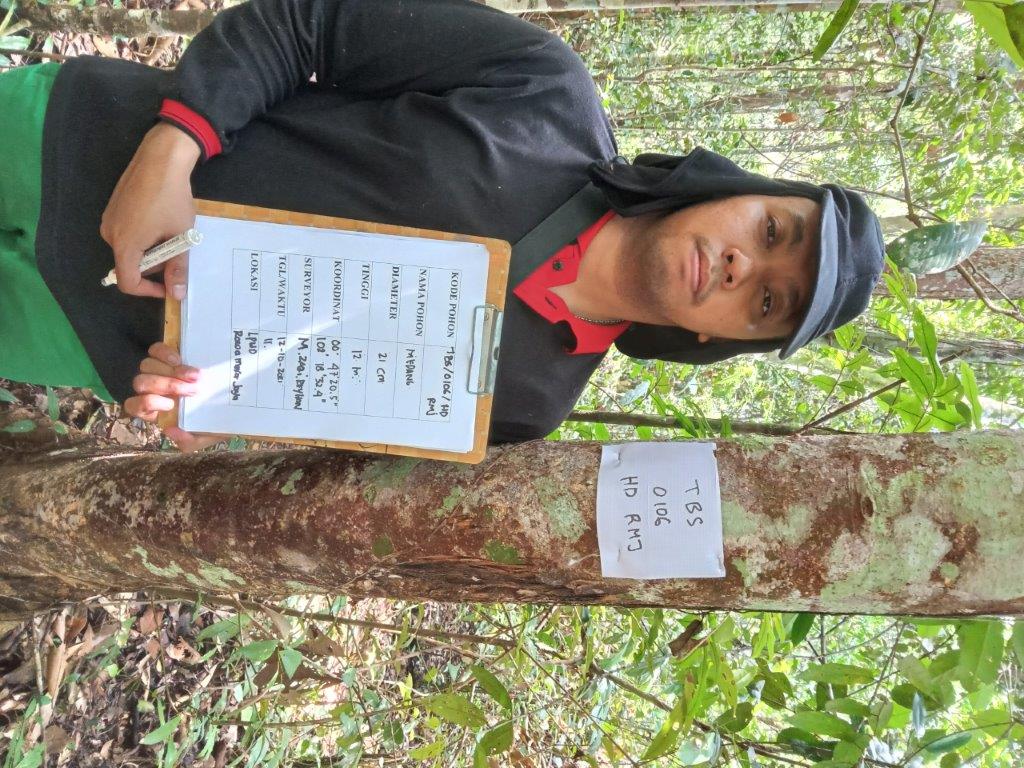 TBS
0106
HD RMJ
KODE POHON TBS/0106/HD
RMJ
NAMA POHON MEDANG
DIAMETER 21 CM
TINGGI 12 M.
KOORDINAT 00° 47'20.5"
108° 18'32.4"
SURVEYOR M.
TGL/WAKTU 12-10-2021
11.
LOKASI LPHD
Jaya